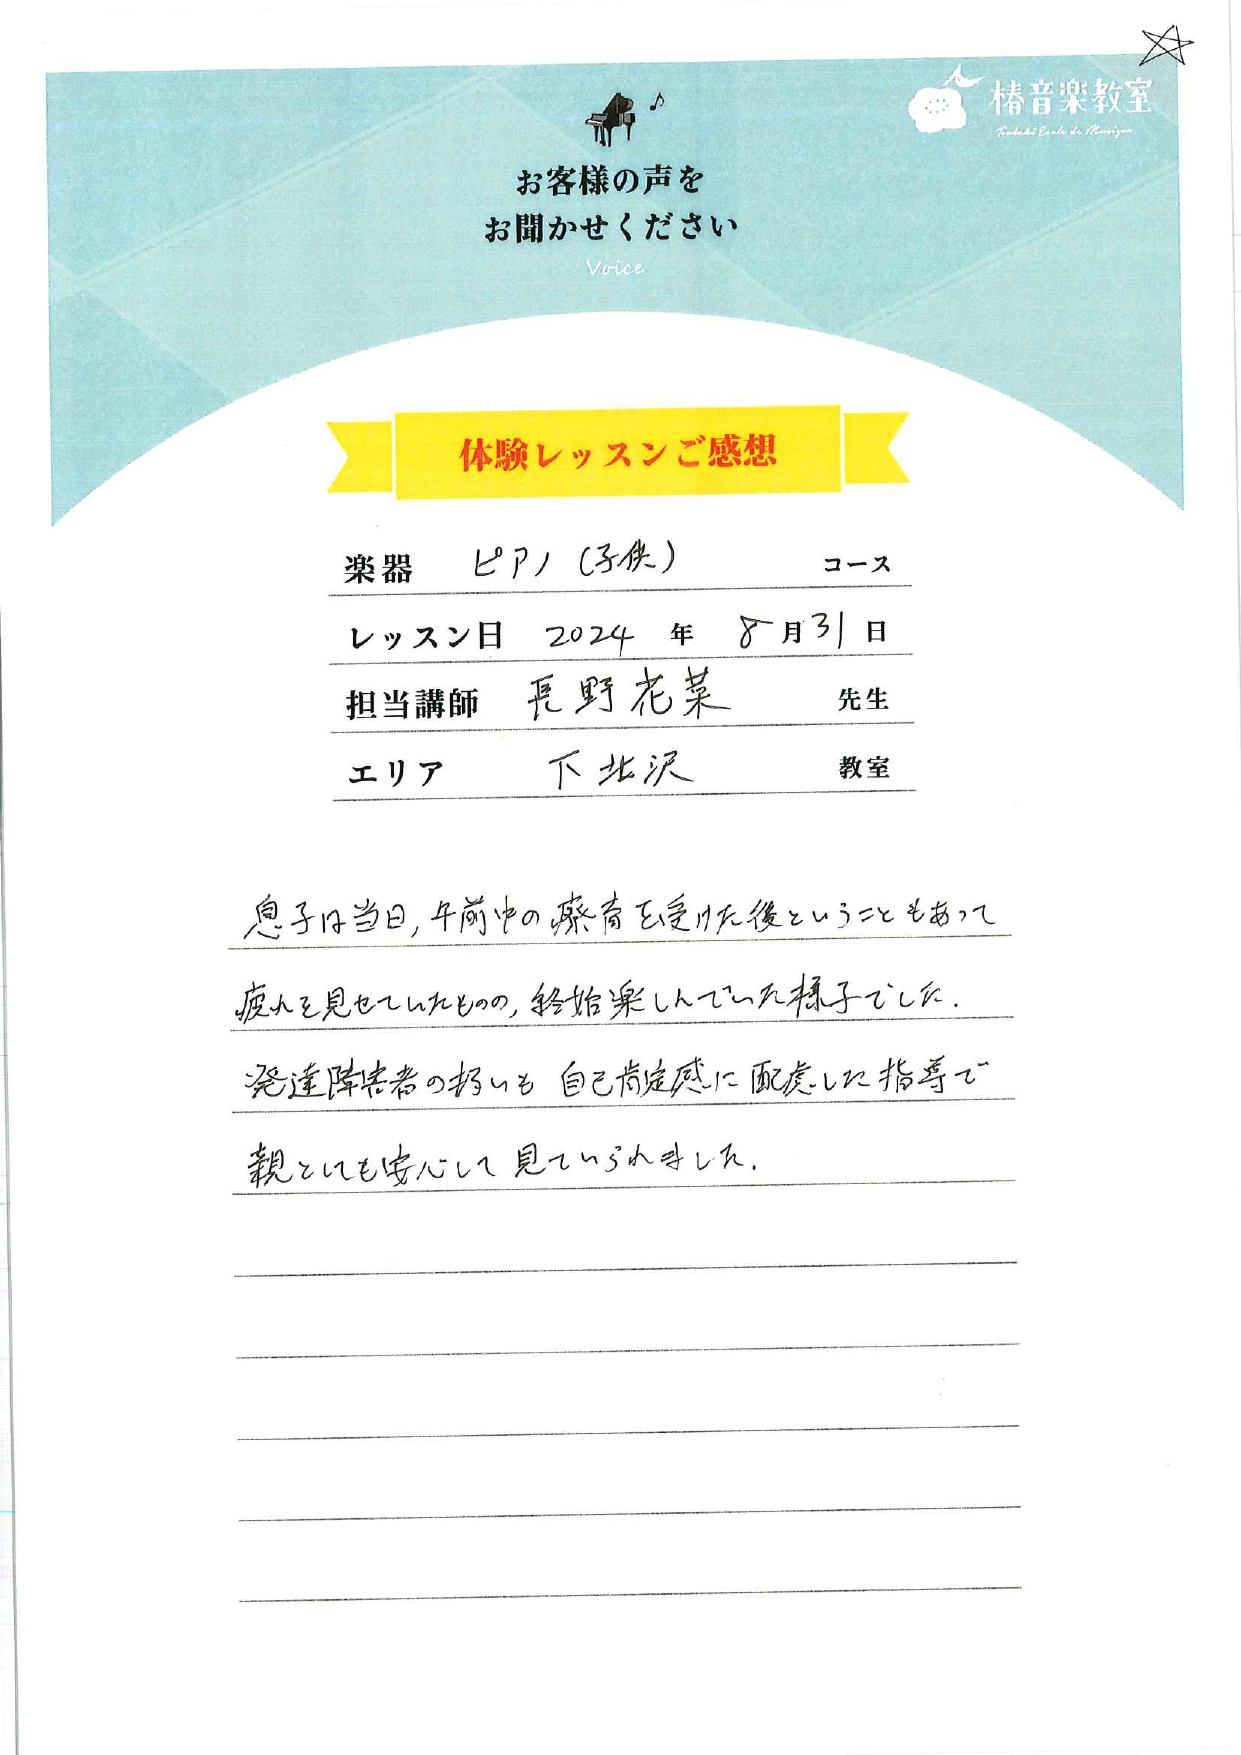 椿音楽教室
Tsubaki Ecole de Musique
お客様の声を
お聞かせください
Voice
体験レッスンご感想
楽器 ピアノ(子供) コース
レッスン日 2024 年 8月31日
担当講師 長野花菜 先生
エリア 下北沢 教室
息子は当日,午前中の療育を受けた後ということもあって
疲れを見せていたものの,終始楽しんでいた様子でした.
発達障害者の扱いも 自己肯定感に配慮した指導で
親としても安心して見ていられました.